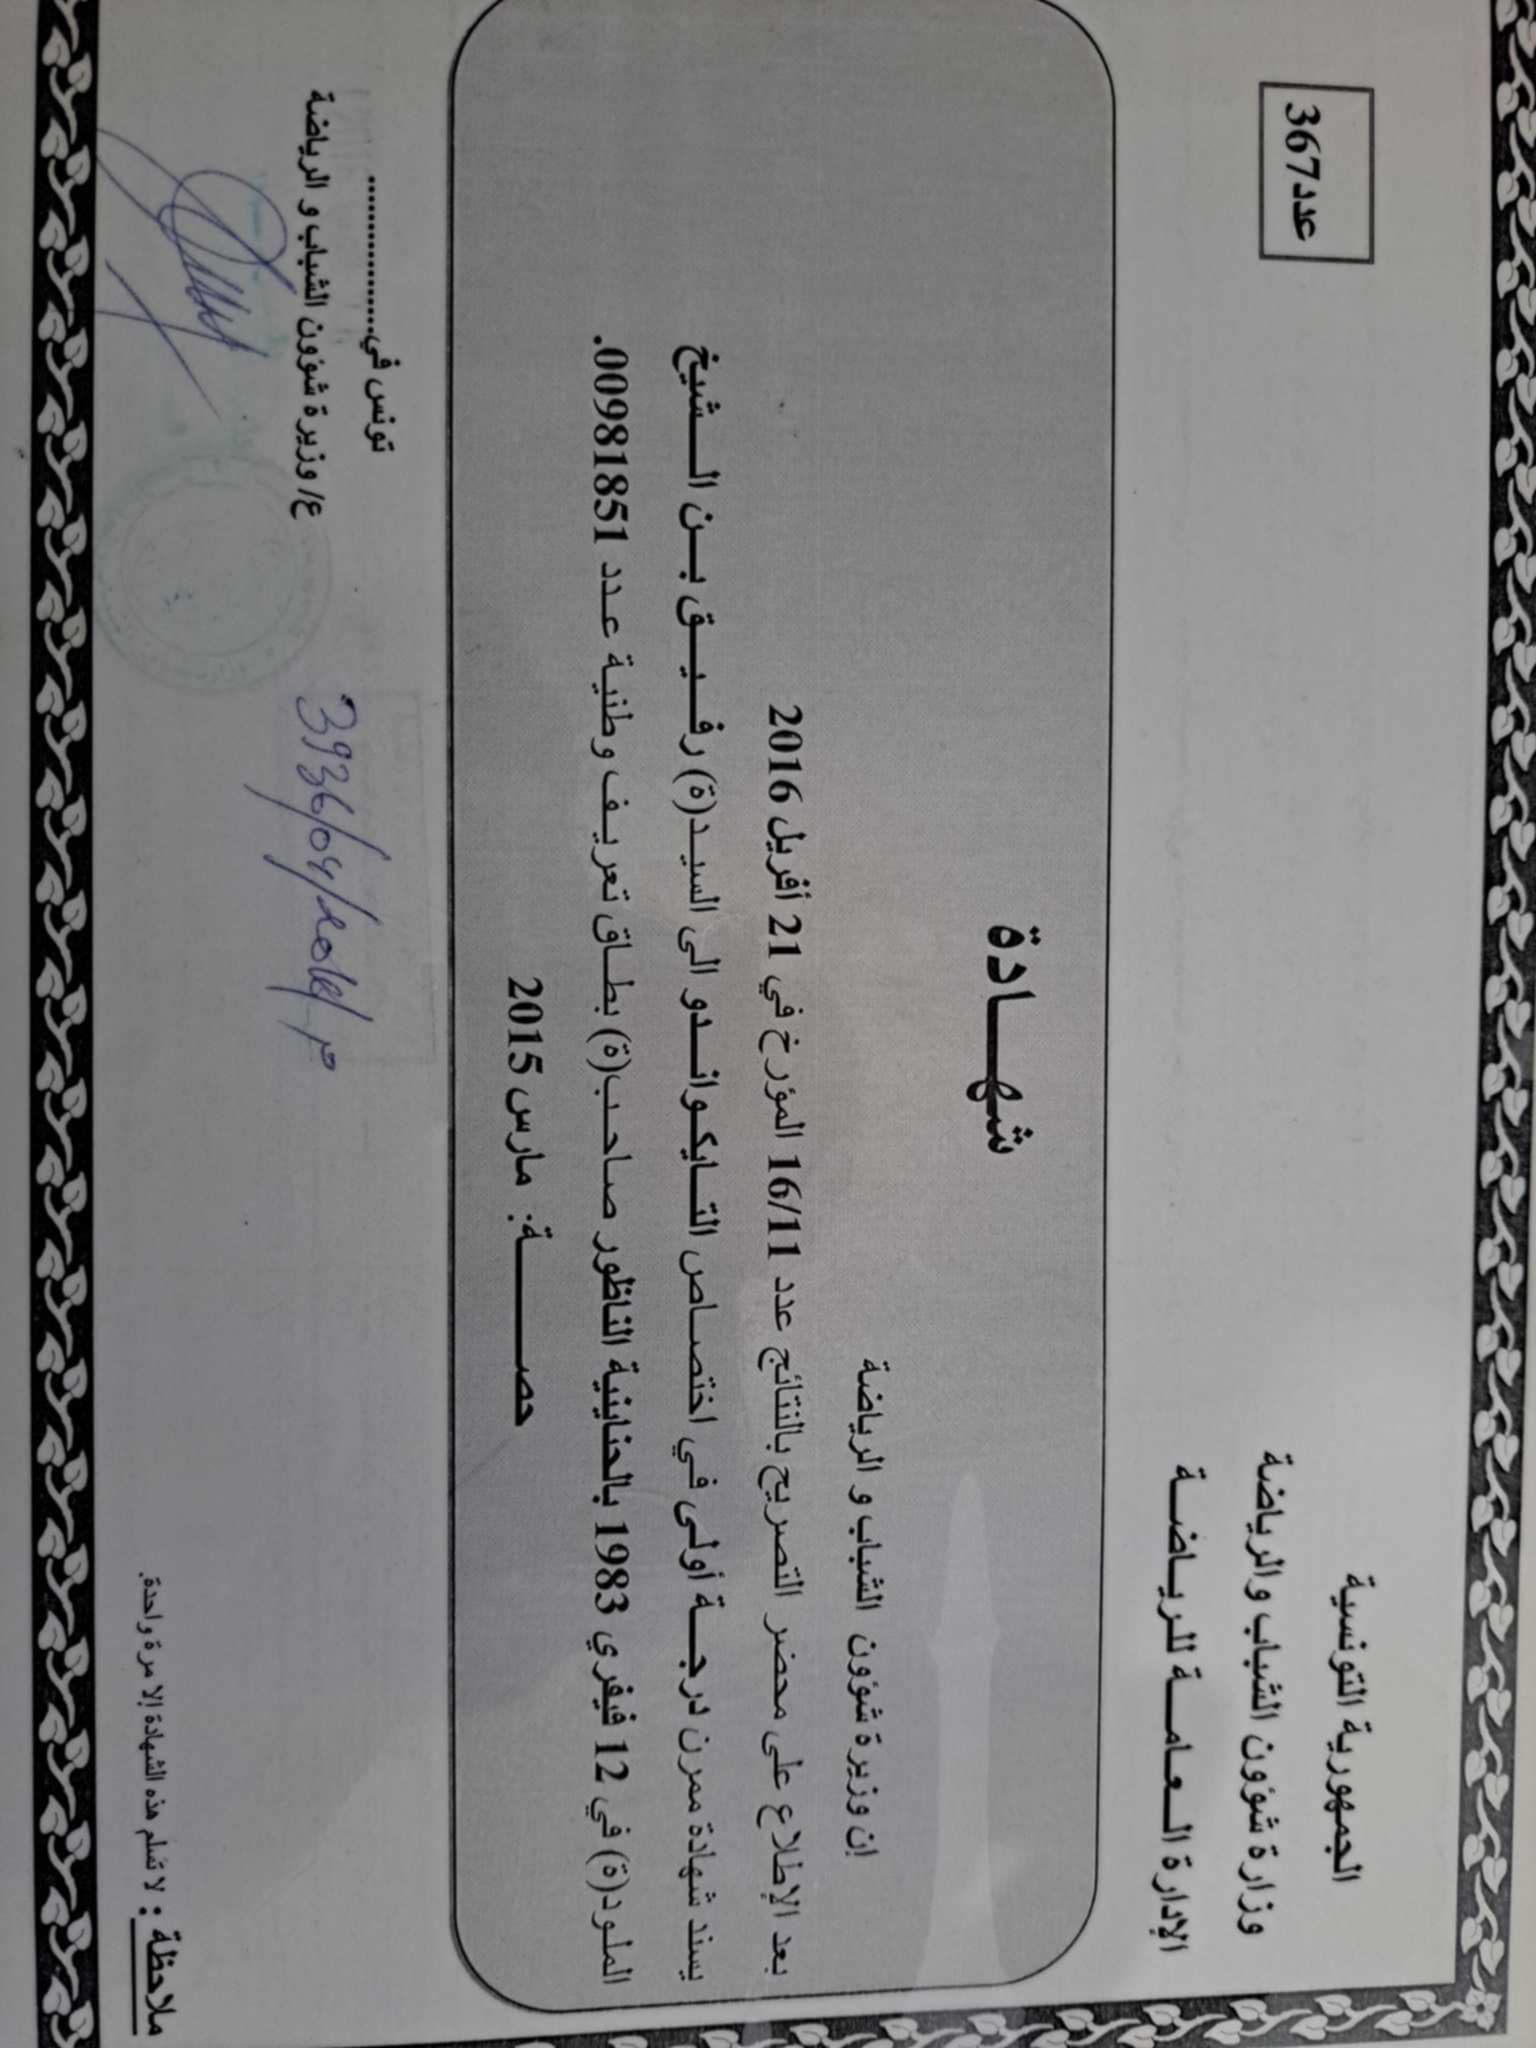 الجمهورية التونسية
وزارة شؤون الشباب والرياضة
الإدارة العامة للرياضة
عدد 367
شهادة
إن وزيرة شؤون الشباب و الرياضة
بعد الإطلاع على محضر التصريح بالنتائج عدد 16/11 المؤرخ في 21 أفريل 2016
يسند شهادة ممرن درجة أولى في اختصاص التايكواندو الى السيد(ة) رفيق بن الشيخ
المولود(ة) في 12 فيفري 1983 بالحناينية الناظور صاحب(ة) بطاق تعريف وطنية عدد 00981851.
حصة: مارس 2015
تونس في................
ع/ وزيرة شؤون الشباب و الرياضة
ملاحظة : لا تسلم هذه الشهادة إلا مرة واحدة.